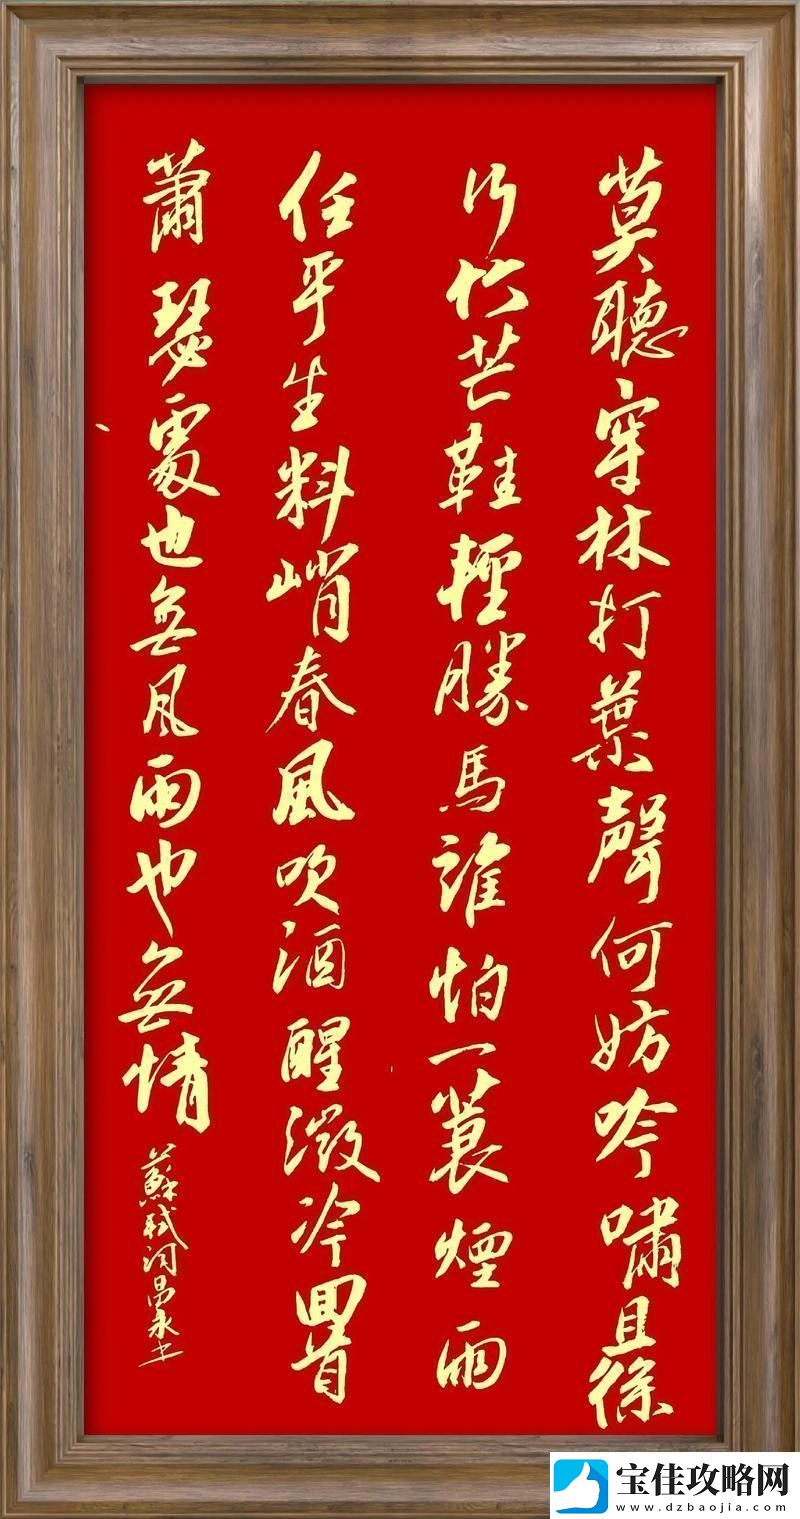 莫聽穿林打葉聲何妨吟嘯且徐
行竹芒鞋輕勝馬誰怕一蓑煙雨
任平生料峭春風吹酒醒微冷回首
蕭瑟處也無風雨也無情
蘇軾詞昌永书
宝佳攻略网
www.dzbaojia.com